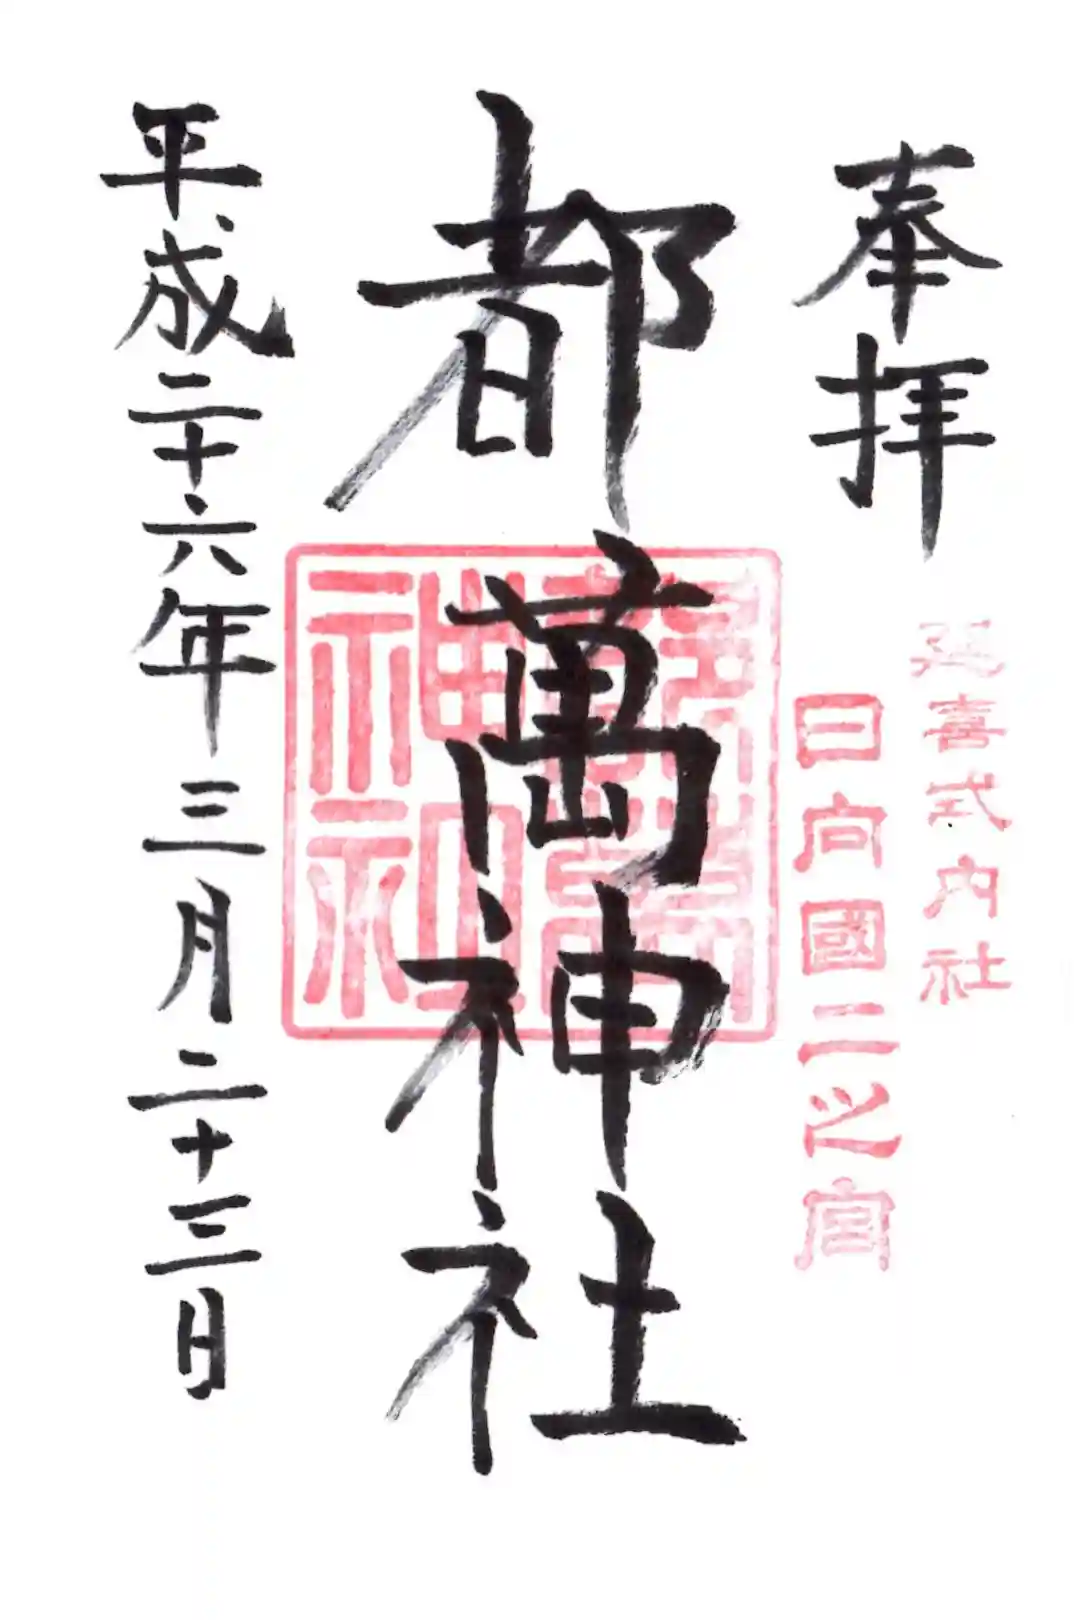 奉拝
延喜式内社
日向國二之宮
都萬神社
都萬神社
平成二十六年三月二十三日